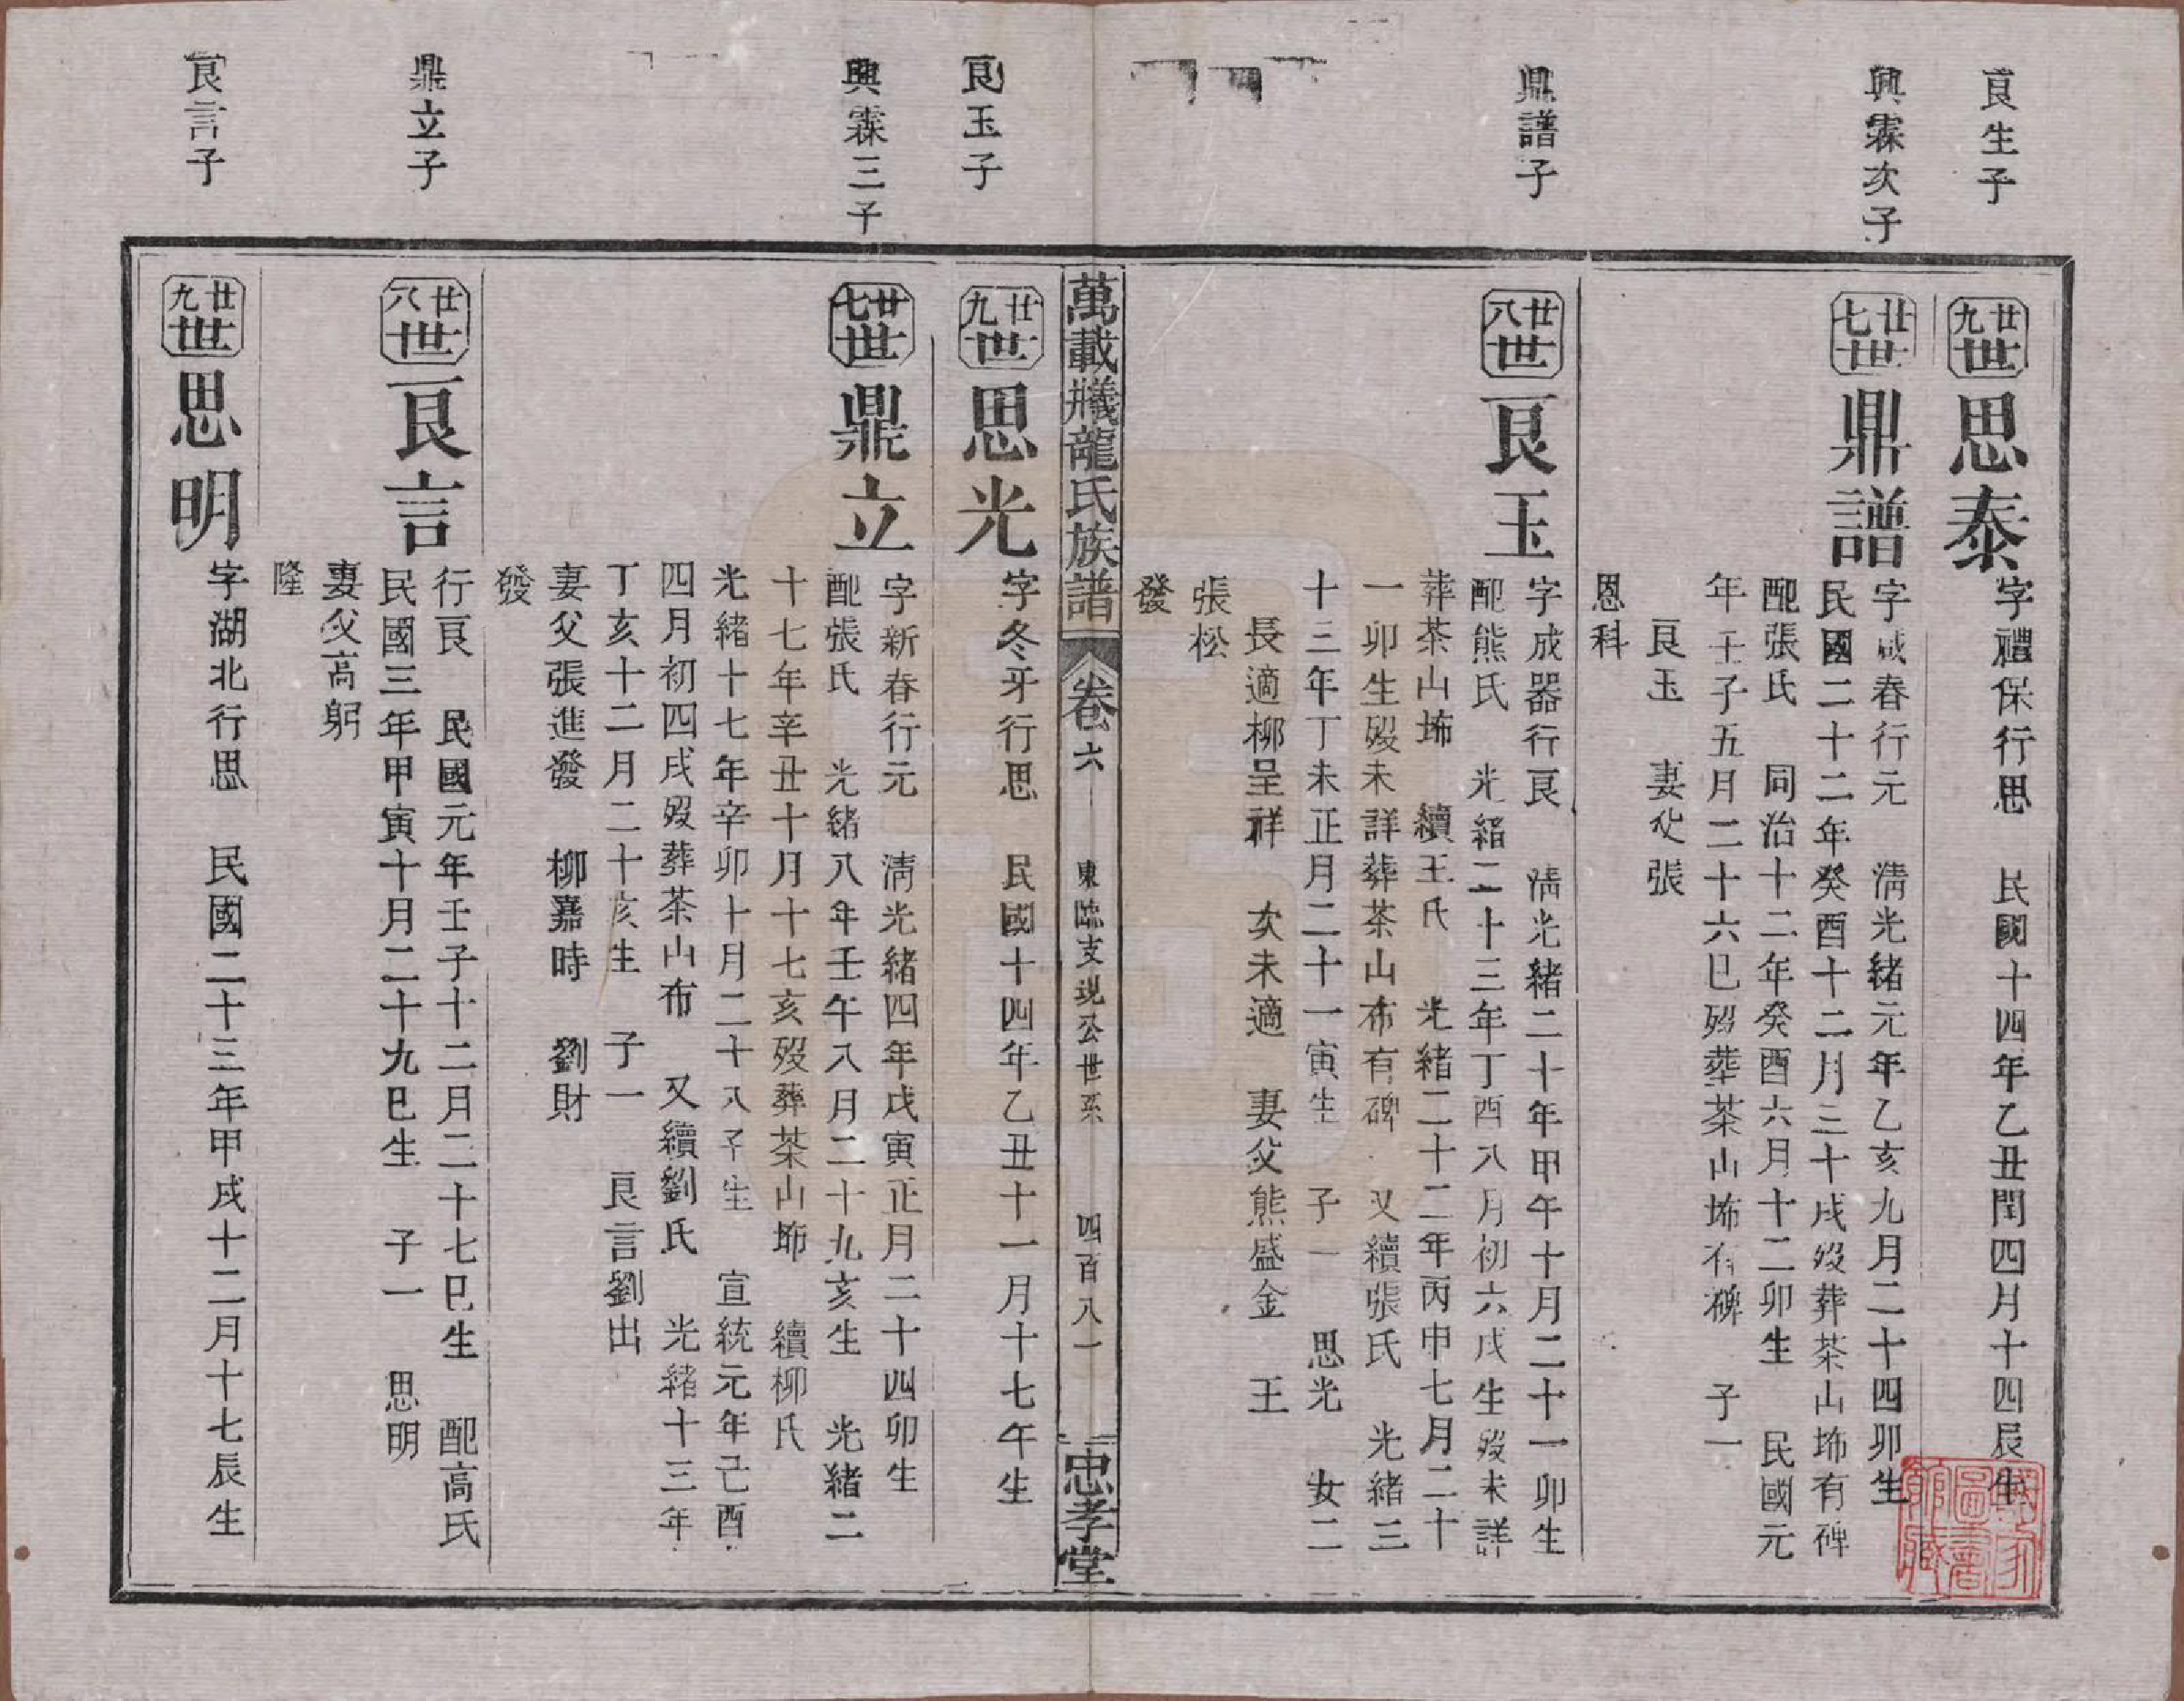 良生子
廿九世 思泰
字禮保行思 民國十四年乙丑閏四月十四辰生
興霖次子
廿七世 鼎譜
字咸春行元 清光緒元年乙亥九月二十四卯生
民國二十二年癸酉十二月三十戌歿葬茶山㘵有碑
配張氏 同治十二年癸酉六月十二卯生 民國元
年壬子五月二十六巳歿葬茶山㘵有碑 子一
良玉 妻父張
恩科
鼎譜子
廿八世 良玉
字成器行良 清光緒二十年甲午十月二十一卯生
配熊氏 光緒二十三年丁酉八月初六戌生歿未詳
葬茶山㘵 續王氏 光緒二十二年丙申七月二十
一卯生歿未詳葬茶山布有碑 又續張氏 光緒三
十三年丁未正月二十一寅生 子一 思光 女二
長適柳呈祥 次未適 妻父熊盛金 王
張松
發
萬載㸍龍氏族譜 卷六 東臨支現公世系 四百八一 忠孝堂
良玉子
廿九世 思光
字冬牙行思 民國十四年乙丑十一月十七午生
興霖三子
廿七世 鼎立
字新春行元 清光緒四年戊寅正月二十四卯生
配張氏 光緒八年壬午八月二十九亥生 光緒二
十七年辛丑十月十七亥歿葬茶山㘵 續柳氏
光緒十七年辛卯十月二十八子生 宣統元年己酉
四月初四戌歿葬茶山布 又續劉氏 光緒十三年
丁亥十二月二十亥生 子一 良言劉出
妻父張進發 柳嘉時 劉財
發
鼎立子
廿八世 良言
行良 民國元年壬子十二月二十七巳生 配高氏
民國三年甲寅十月二十九巳生 子一 思明
妻父高躬
隆
良言子
廿九世 思明
字湖北行思 民國二十三年甲戌十二月十七辰生
國家圖書館藏